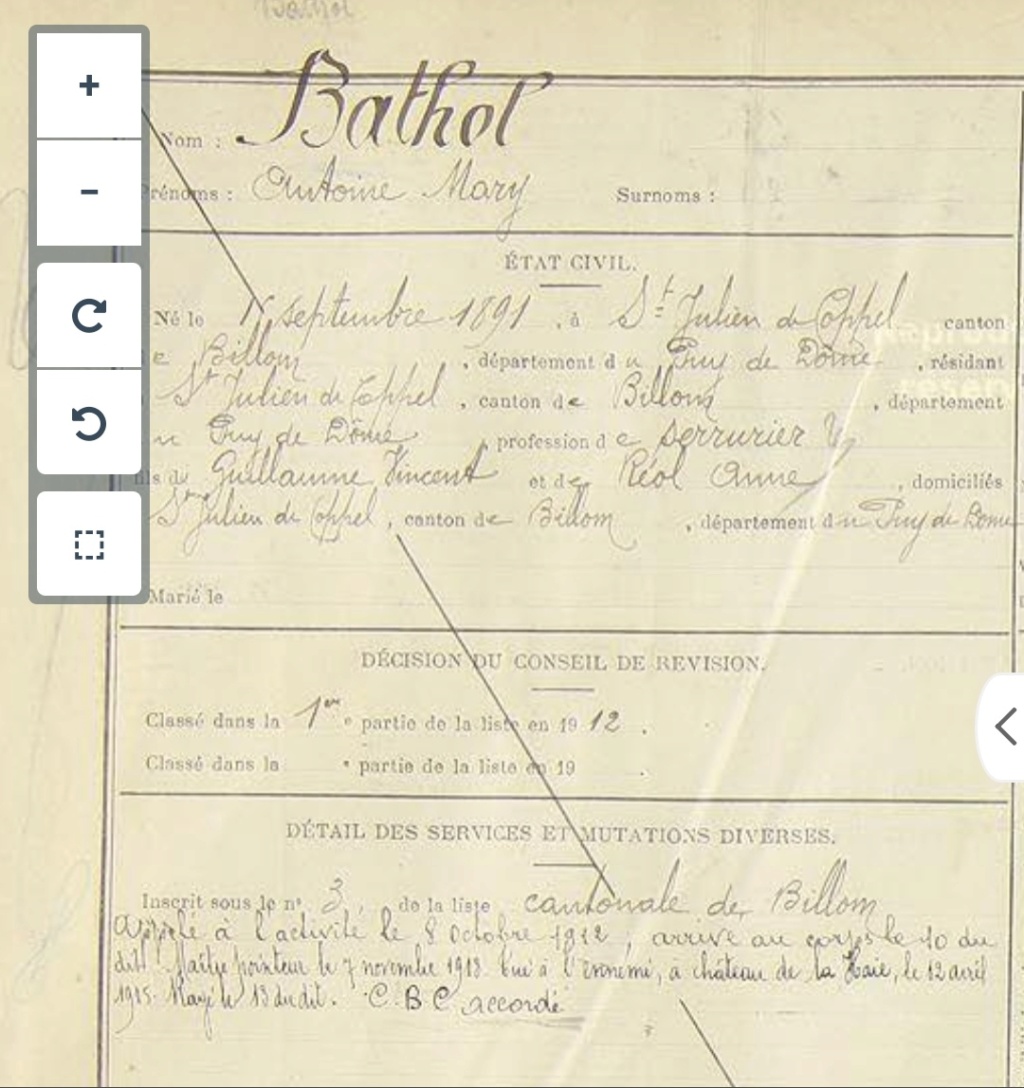 Bathol
Nom : Bathol
Prénoms : Antoine Mary Surnoms :
ÉTAT CIVIL.
Né le septembre 1891, à St Julien de Coppel canton
e Billom, département du Puy de Dôme, résidant
St Julien de Coppel, canton de Billom, département
u Puy de Dôme, profession de serrurier
ils de Guillaume Vincent et de Réol Anne, domiciliés
St Julien de Coppel, canton de Billom, département du Puy de Dome
Marié le
DÉCISION DU CONSEIL DE REVISION.
Classé dans la 1ere e partie de la liste en 1912.
Classé dans la e partie de la liste en 19 .
DÉTAIL DES SERVICES ET MUTATIONS DIVERSES.
Inscrit sous le n° 3, de la liste cantonale de Billom
Appelé à l'activité le 8 Octobre 1912, arrivé au corps le 10 du
dit. Maître pointeur le 7 novembre 1913. Tué à l'ennemi, à château de la Haie, le 12 avril
1915. Rayé le 13 du dit. C. B C accordé